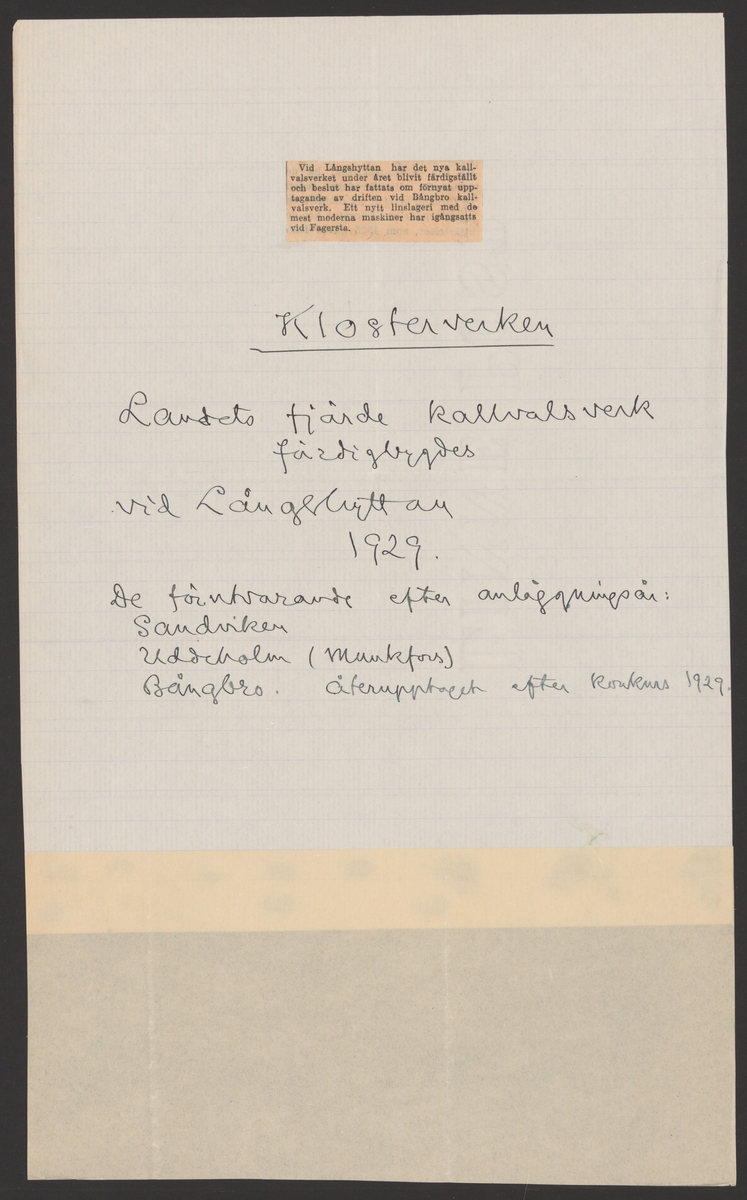 Vid Långshyttan har det nya kall-
valsverket under året blivit färdigställt
och beslut har fattats om förnyat upp-
tagande av driften vid Bångbro kall-
valsverk. Ett nytt linslageri med de
mest moderna maskiner har igångsatts
vid Fagersta.
Klosterverken
Landets fjärde kallvalsverk
färdigbygdes
vid Långshyttan
1929.
De förutvarande efter anläggningsår:
Sandviken
Uddeholm (Munkfors)
Bångbro. Återupptaget efter konkurs 1929.